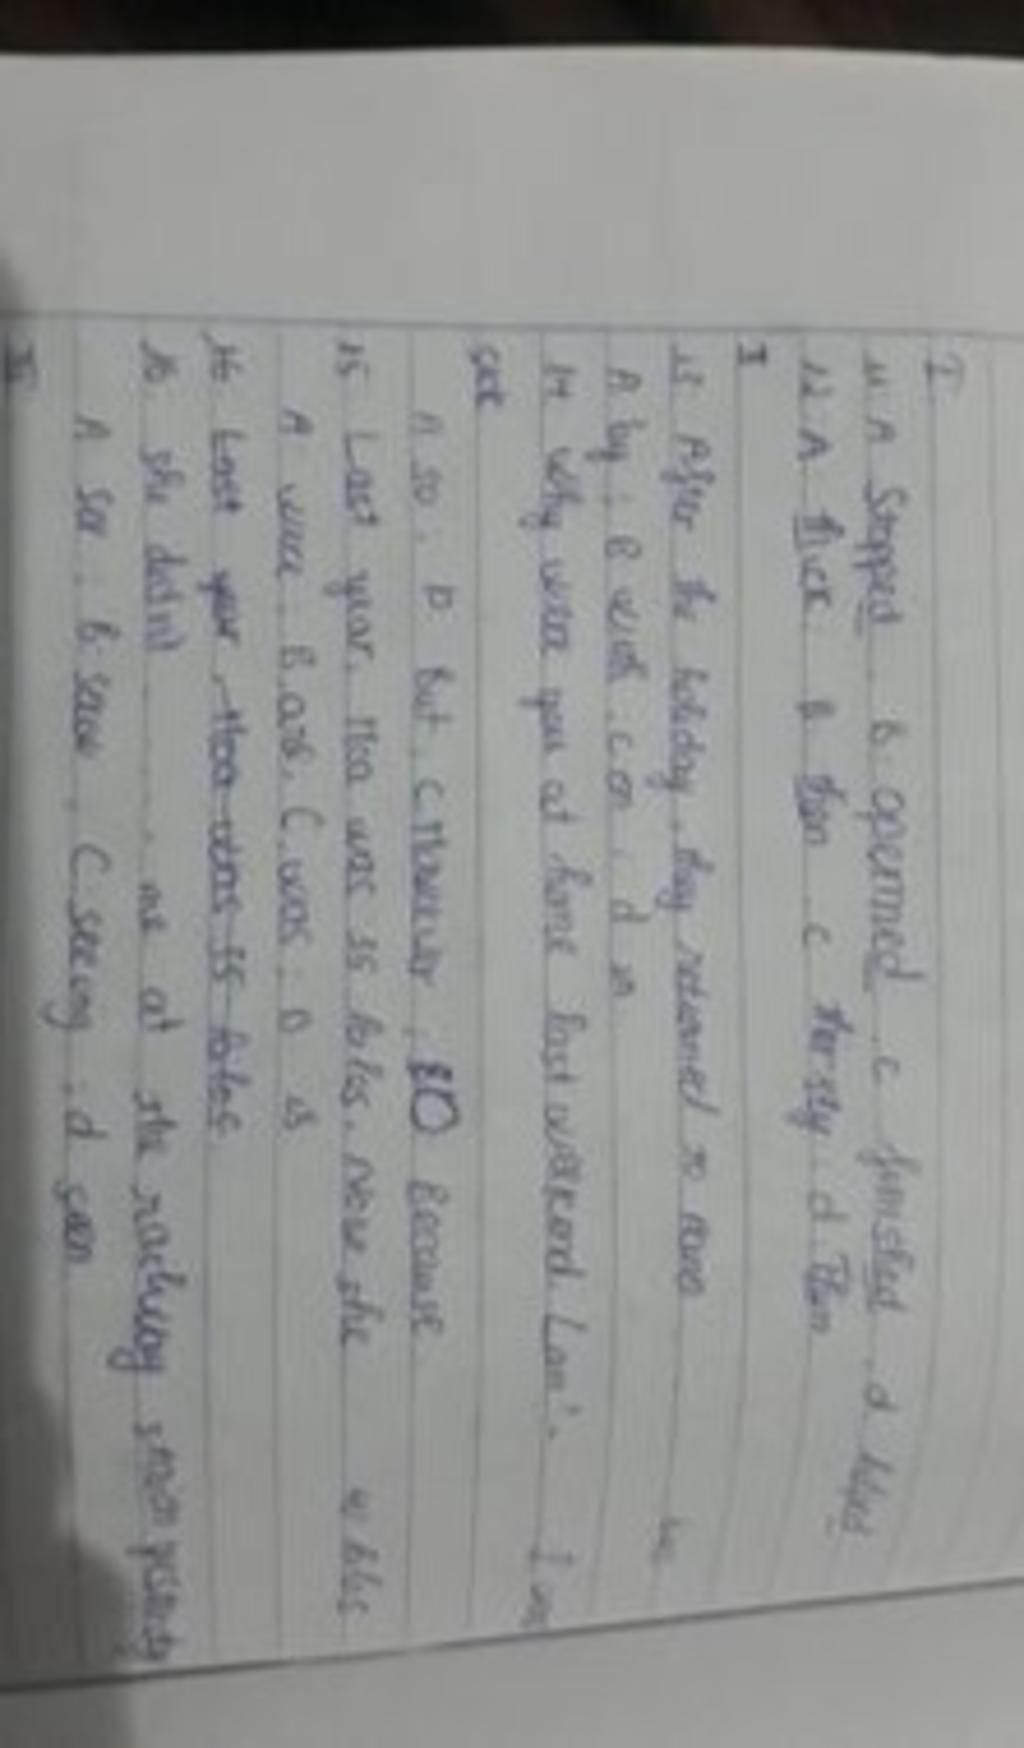 I
11 A Stopped. B. opermed. c finished. d
12 A thick. B then c d. Then
I
13 After the holiday, they returned to
A by. B with. c on. d in
14 Why were you at home last weekend, Lan? I was
sick
A so. b but. c However. D Because
15 Last year, Hoa was 35 kilos. Now she 41 kilos
A were. B are. C was. D is
16 Last year, Hoa was 35 kilos.
16 she didn't . . . . . me at the railway station
A see. B. seeing. C seeing. d seen